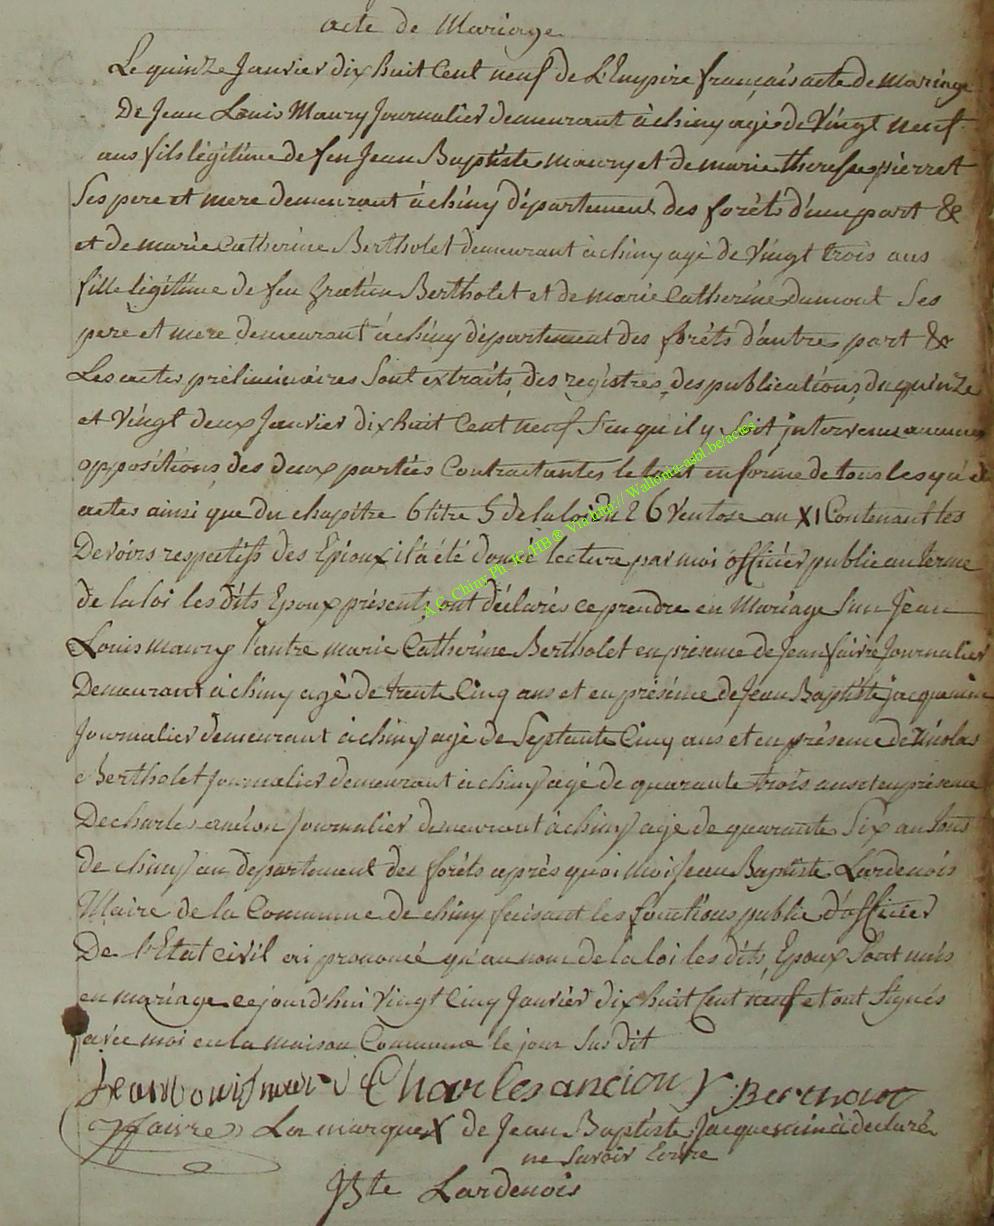 acte de Mariage
Le quinze Janvier dix huit Cent neuf de L'Empire français acte de mariage
De Jean Louis Maury Journalier demeurant à chiny agé de Vingt neuf
ans fils légitime de feu Jean Baptiste maury et de marie therese pierret
Ses pere et mere demeurant à chiny département des forêts d'une part &
et de marie Catherine Bertholet demeurant à chiny agé de Vingt trois ans
fille légitime de feu Bertholet et de marie Catherine dumont Ses
pere et mere demeurant à chiny département des forêts d'autre part &
Les actes préliminaires Sont extraits des registres des publications du quinze
et Vingt deux Janvier dix huit Cent neuf Sans qu'il y Soit intervenu aucunes
oppositions des deux parties Contractantes le tout en forme de tous les quels
actes ainsi que du chapitre 6 titre 5 de la loi du 26 Ventose an XI Contenant les
Devoirs respectifs des Epoux il à été donné lecture par moi officier public au terme
de la loi les dits Epoux présents ont déclarés ce prendre en Mariage l'un Jean
Louis maury l'autre marie Catherine Bertholet en présence de Jean faivre Journalier
Demeurant à chiny agé de trente Cinq ans et en présence de Jean Baptiste jacquemin
Journalier demeurant à chiny agé de Septante Cinq ans et en présence de Nicolas
Bertholet Journalier demeurant à chiny agé de quarante trois ans et en présence
De charles ancion Journalier demeurant à chiny agé de quarante Six ans tous
de chiny au département des forêts après quoi moi Jean Baptiste Lardenois
Maire de la Commune de chiny faisant les fonctions public d'officier
De l'Etat civil ai prononcé qu'au nom de la loi les dits Epoux Sont unis
en mariage ce jourd'hui Vingt Cinq Janvier dix huit Cent neuf et ont Signés
avec moi en la maison Commune le jour Sus dit
Jean Louis Charles ancion
J faivre La marque X de Jean Baptiste Jacquemin à déclaré
ne Savoir Ecrire
JBte Lardenois
A.C. Chiny Ph. JC HB ® Via http:// Wallonia-asbl.be/actes